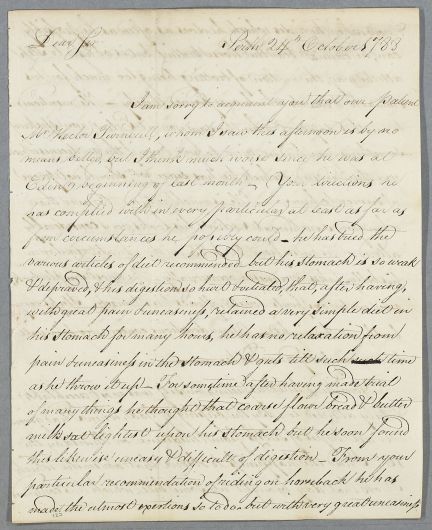 Dear Sir Perth 24th October 1783
I am sorry to acquaint you that our Patient
Mr Hector Turnbull, whom I saw this afternoon is by no
means better, but I think much worse since he was at
Edinr beginning of last month — Your directions he
has complied with in every particular, at least as far as
from circumstances he possibly could — he has tried the
various articles of diet recommended but his stomach is so weak
& depraved, & his digestion so hurt & vitiated, that, after having,
with great pain & uneasiness, retained a very simple diet in
his stomach for many hours, he has no relaxation from
pain & uneasiness in the stomach & guts till such time
as he throw it up — For sometime after having made trial
of many things he thought that coarse flour bread & butter
with salt lightest upon his stomach but he soon found
this likewise uneasy & difficult of digestion — From your
particular recommendation of riding on horseback he has
made the utmost exertions so to do, but with very great uneasiness